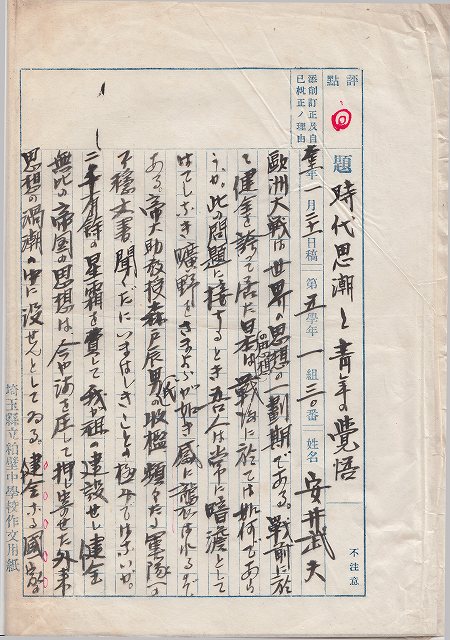 評點
題 時代思潮と青年の覺悟
添削訂正及自己批正ノ理由
年一月三十日稿 第五學年一組三〇番 姓名 安井武夫
不注意
歐洲大戰は世界の思想の一劃期である。戰前に於
て健全を誇って居た 思想 戰後に於ては如何であら
うか。此の問題に接するとき吾人は常に暗澹として
はてしなき曠野をさまよふが如き感に襲はれるのぞ
ある。帝大助教授森戸辰男 氏の 類々たる軍隊の
不穏文書 聞くだにいまはしきことの極みではないか。
二千有餘の星霜を費して我が祖の建設せし健全
無比の帝国の思想は今や海を圧して押し寄せた外来
思想の渦潮の中に没せんとしてゐる。健全なる國家の
埼玉縣立粕壁中學校作文用紙